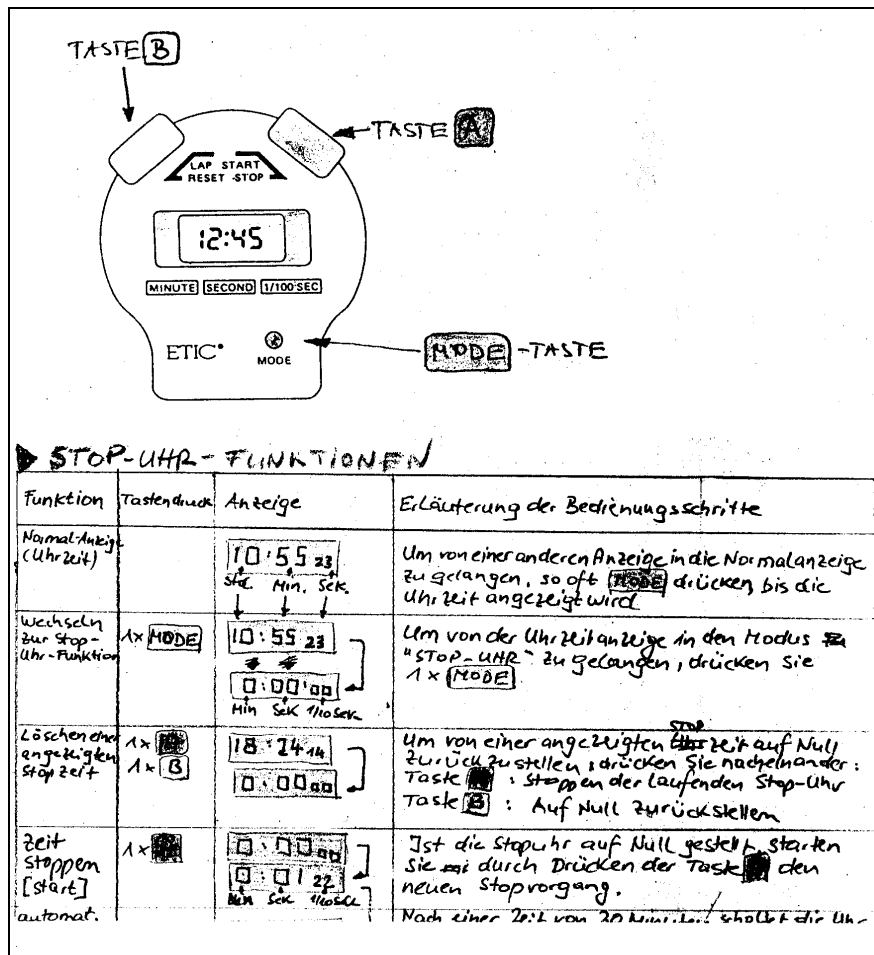 TASTE B
TASTE A
LAP START
RESET -STOP
12:45
MINUTE SECOND 1/100 SEC
ETIC
MODE
MODE -TASTE
STOP-UHR-FUNKTIONEN
Funktion Tastendruck Anzeige Erläuterung der Bedienungsschritte
Normal-Anzeige
(Uhrzeit)
10:55 23
Std. Min. Sek.
Um von einer anderen Anzeige in die Normalanzeige
zu gelangen, so oft MODE drücken, bis die
Uhrzeit angezeigt wird
Wechseln
zur Stop-
Uhr-Funktion
1x MODE
10:55 23
0:00'00
Min Sek 1/10 Sek.
Um von der Uhrzeitanzeige in den Modus
"STOP-UHR" zu gelangen, drücken Sie
1x MODE
Löschen einer
angezeigten
Stopzeit
1x
1x B
18:24 14
0:00 00
Um von einer angezeigten STOP zeit auf Null
zurückzustellen, drücken Sie nacheinander:
Taste : Stoppen der laufenden Stop-Uhr
Taste B : Auf Null zurückstellen
Zeit
stoppen
[start]
1x
0:00 00
0:01 22
Min Sek 1/10 Sek
Ist die Stopuhr auf Null gestellt, starten
Sie durch Drücken der Taste den
neuen Stopvorgang.
automat.
Nach einer Zeit von 20 Minuten schaltet die Uhr